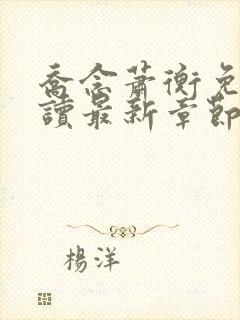 喬念蕭衡免
讀最新章節
楊洋